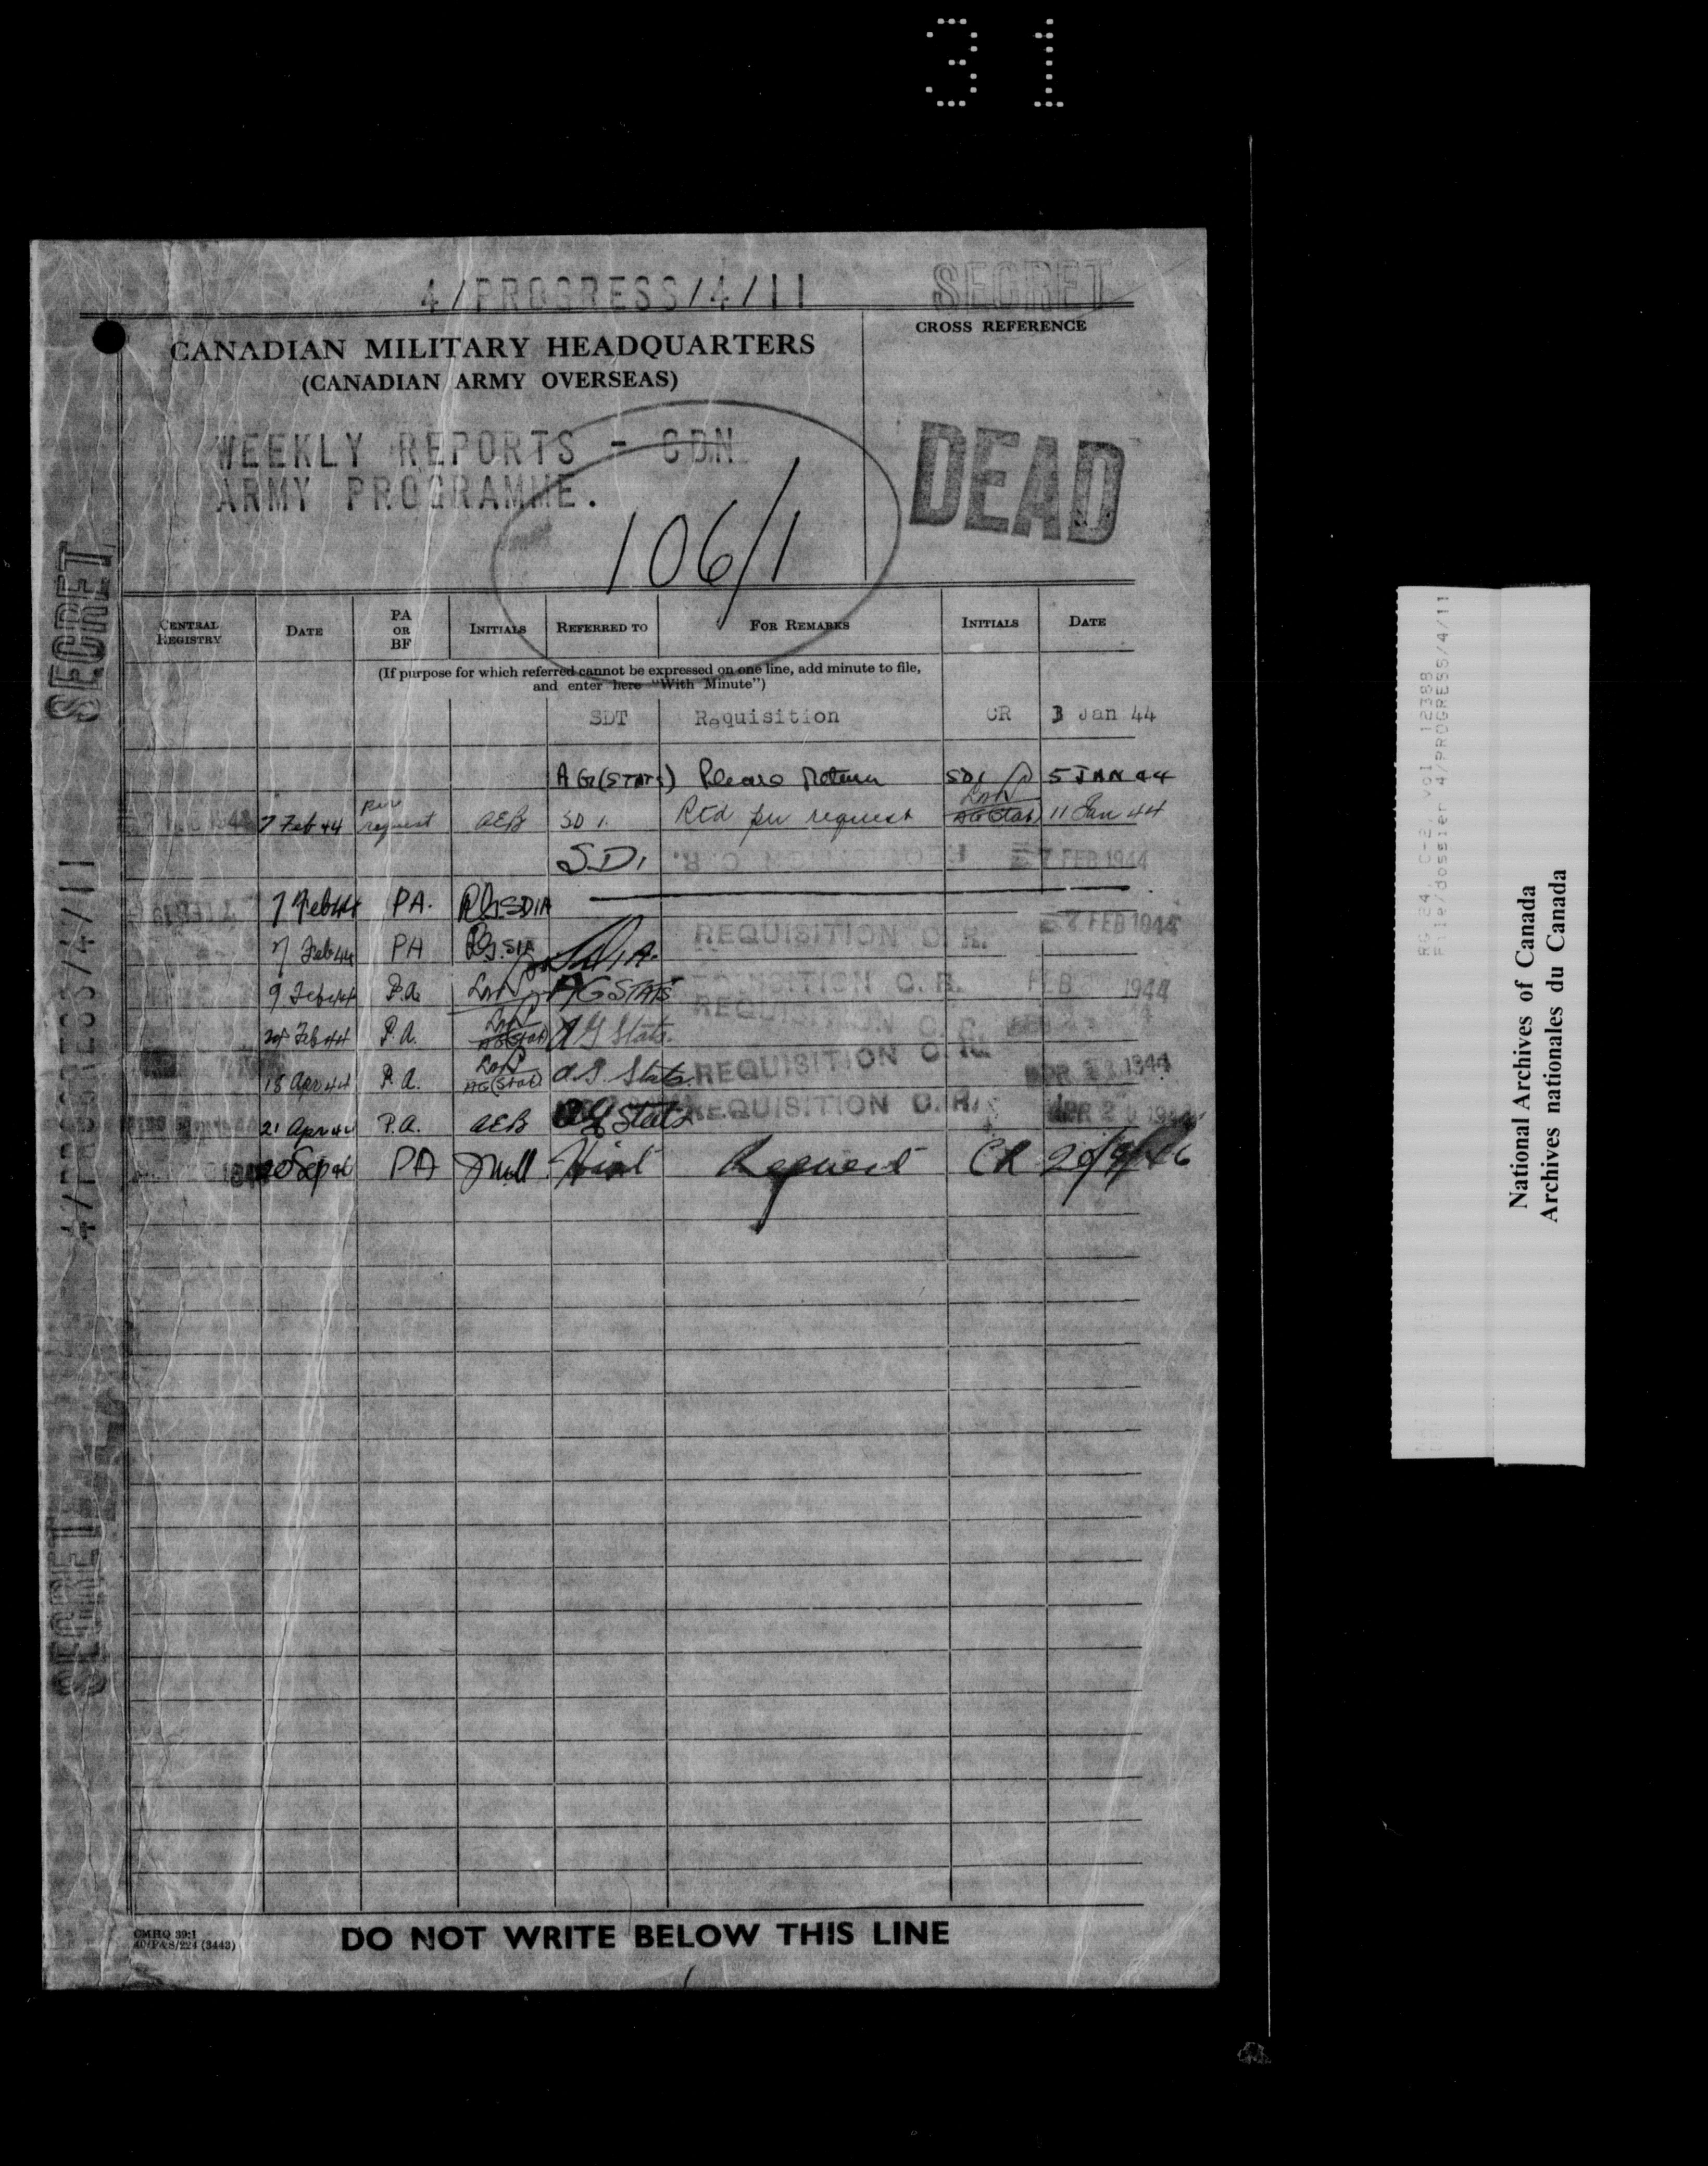 31
4/PROGRESS/4/11
SECRET
CANADIAN MILITARY HEADQUARTERS
(CANADIAN ARMY OVERSEAS)
CROSS REFERENCE
WEEKLY REPORTS - CDN
ARMY PROGRAMME.
DEAD
106/1
CENTRAL REGISTRY DATE PA OR BF INITIALS REFERRED TO FOR REMARKS INITIALS DATE
(If purpose for which referred cannot be expressed on one line, add minute to file,
and enter here "With Minute")
SDT Requisition CR 3 Jan 44
AG(STATS) Please Return SD1 5 JAN 44
7 Feb 44 per request AEB SD 1. Rtd per request AG Stats 11 Jan 44
SD1 7 FEB 1944
7 Feb 44 PA. SD1A
7 Feb 44 PA REQUISITION C. R. 7 FEB 1944
9 Feb 44 P.A. AG STATS C. R. FEB 1944
Feb 44 P.A. AG Stats. REQUISITION
18 Apr 44 P.A. AG(Stats) A.G. Stats. REQUISITION C. R. 1944
21 Apr 44 P.A. AEB AG Stats REQUISITION C. R. APR 20 1944
20 Sep 46 PA Hist Request CR 20/9/46
DO NOT WRITE BELOW THIS LINE
CMHQ 39:1
40/P&S/224 (3443)
SECRET
4/PROGRESS/4/11
SECRET
RG 24, C-2, vol. 12388
File/dossier 4/PROGRESS/4/11
National Archives of Canada
Archives nationales du Canada